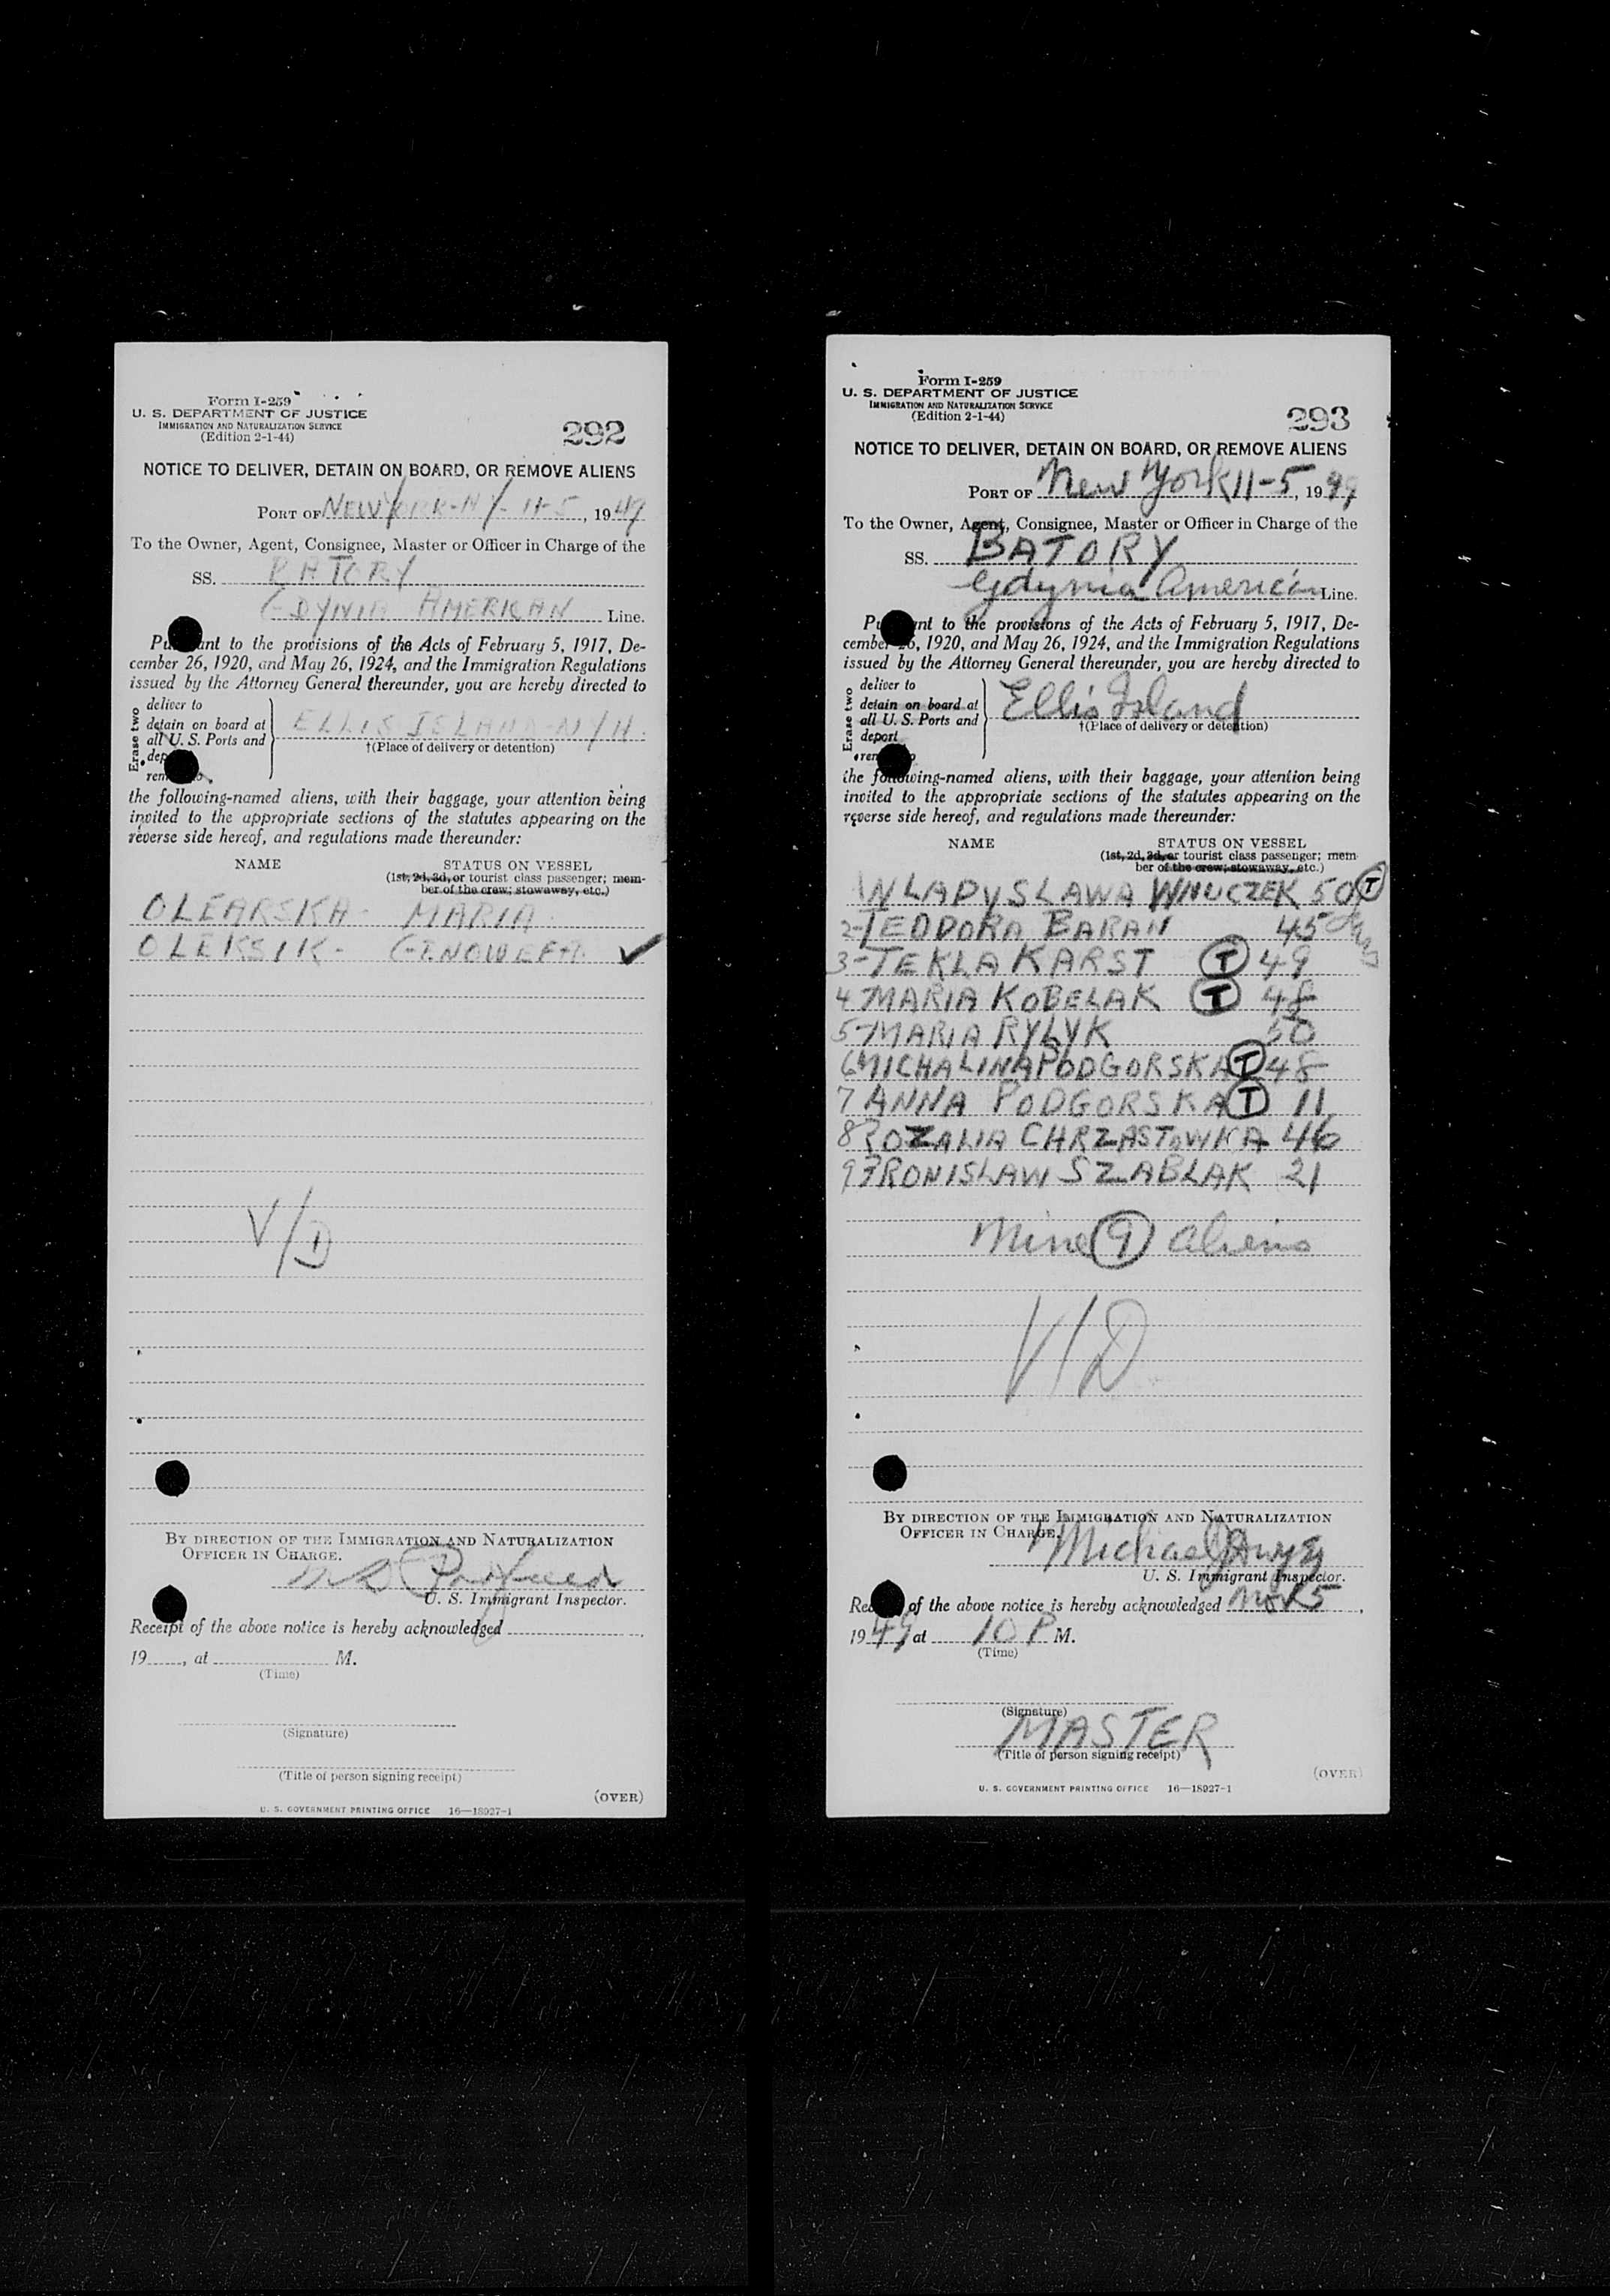 Form I-259
U. S. DEPARTMENT OF JUSTICE
IMMIGRATION AND NATURALIZATION SERVICE
(Edition 2-1-44)
292
NOTICE TO DELIVER, DETAIN ON BOARD, OR REMOVE ALIENS
PORT OF NEW YORK-NY-11-5, 1949
To the Owner, Agent, Consignee, Master or Officer in Charge of the
SS. BATORY
GDYNIA AMERICAN Line.
Pu ant to the provisions of the Acts of February 5, 1917, De-
cember 26, 1920, and May 26, 1924, and the Immigration Regulations
issued by the Attorney General thereunder, you are hereby directed to
Erase two
deliver to
detain on board at
all U. S. Ports and
dep
rem
ELLIS ISLAND-NYH.
†(Place of delivery or detention)
the following-named aliens, with their baggage, your attention being
invited to the appropriate sections of the statutes appearing on the
reverse side hereof, and regulations made thereunder:
NAME STATUS ON VESSEL
(1st, 2d, 3d, or tourist class passenger; mem-
ber of the crew; stowaway, etc.)
OLEARSKA- MARIA
OLEKSIK- GENOWEFA ✓
V/D
BY DIRECTION OF THE IMMIGRATION AND NATURALIZATION
OFFICER IN CHARGE.
U. S. Immigrant Inspector.
Receipt of the above notice is hereby acknowledged
19, at M.
(Time)
(Signature)
(Title of person signing receipt)
(OVER)
U. S. GOVERNMENT PRINTING OFFICE 16—18927-1
Form I-259
U. S. DEPARTMENT OF JUSTICE
IMMIGRATION AND NATURALIZATION SERVICE
(Edition 2-1-44)
293
NOTICE TO DELIVER, DETAIN ON BOARD, OR REMOVE ALIENS
PORT OF New York 11-5, 1949
To the Owner, Agent, Consignee, Master or Officer in Charge of the
SS. BATORY
Gdynia American Line.
Pu nt to the provisions of the Acts of February 5, 1917, De-
cember 26, 1920, and May 26, 1924, and the Immigration Regulations
issued by the Attorney General thereunder, you are hereby directed to
Erase two
deliver to
detain on board at
all U. S. Ports and
deport
rem
Ellis Island
†(Place of delivery or detention)
the following-named aliens, with their baggage, your attention being
invited to the appropriate sections of the statutes appearing on the
reverse side hereof, and regulations made thereunder:
NAME STATUS ON VESSEL
(1st, 2d, 3d, or tourist class passenger; mem-
ber of the crew; stowaway, etc.)
WLADYSLAWA WNUCZEK 50 T
2-TEODORA BARAN 45
3-TEKLA KARST T 49
4 MARIA KOBELAK T 48
5-MARIA RYLYK 50
6 MICHALINA PODGORSKA T 48
7 ANNA PODGORSKA T 11
8 ROZALIA CHRZASTOWKA 46
9 BRONISLAW SZABLAK 21
Nine (9) aliens
V/D
BY DIRECTION OF THE IMMIGRATION AND NATURALIZATION
OFFICER IN CHARGE.
Michael J
U. S. Immigrant Inspector.
Rec of the above notice is hereby acknowledged Nov 5,
1949 at 10 P M.
(Time)
(Signature)
MASTER
(Title of person signing receipt)
(OVER)
U. S. GOVERNMENT PRINTING OFFICE 16—18927-1